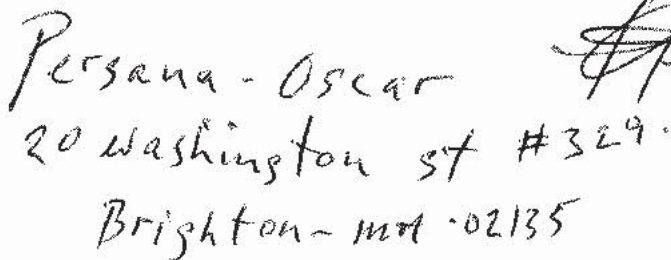 Persana - Oscar
20 washington st #329.
Brighton - MA .02135